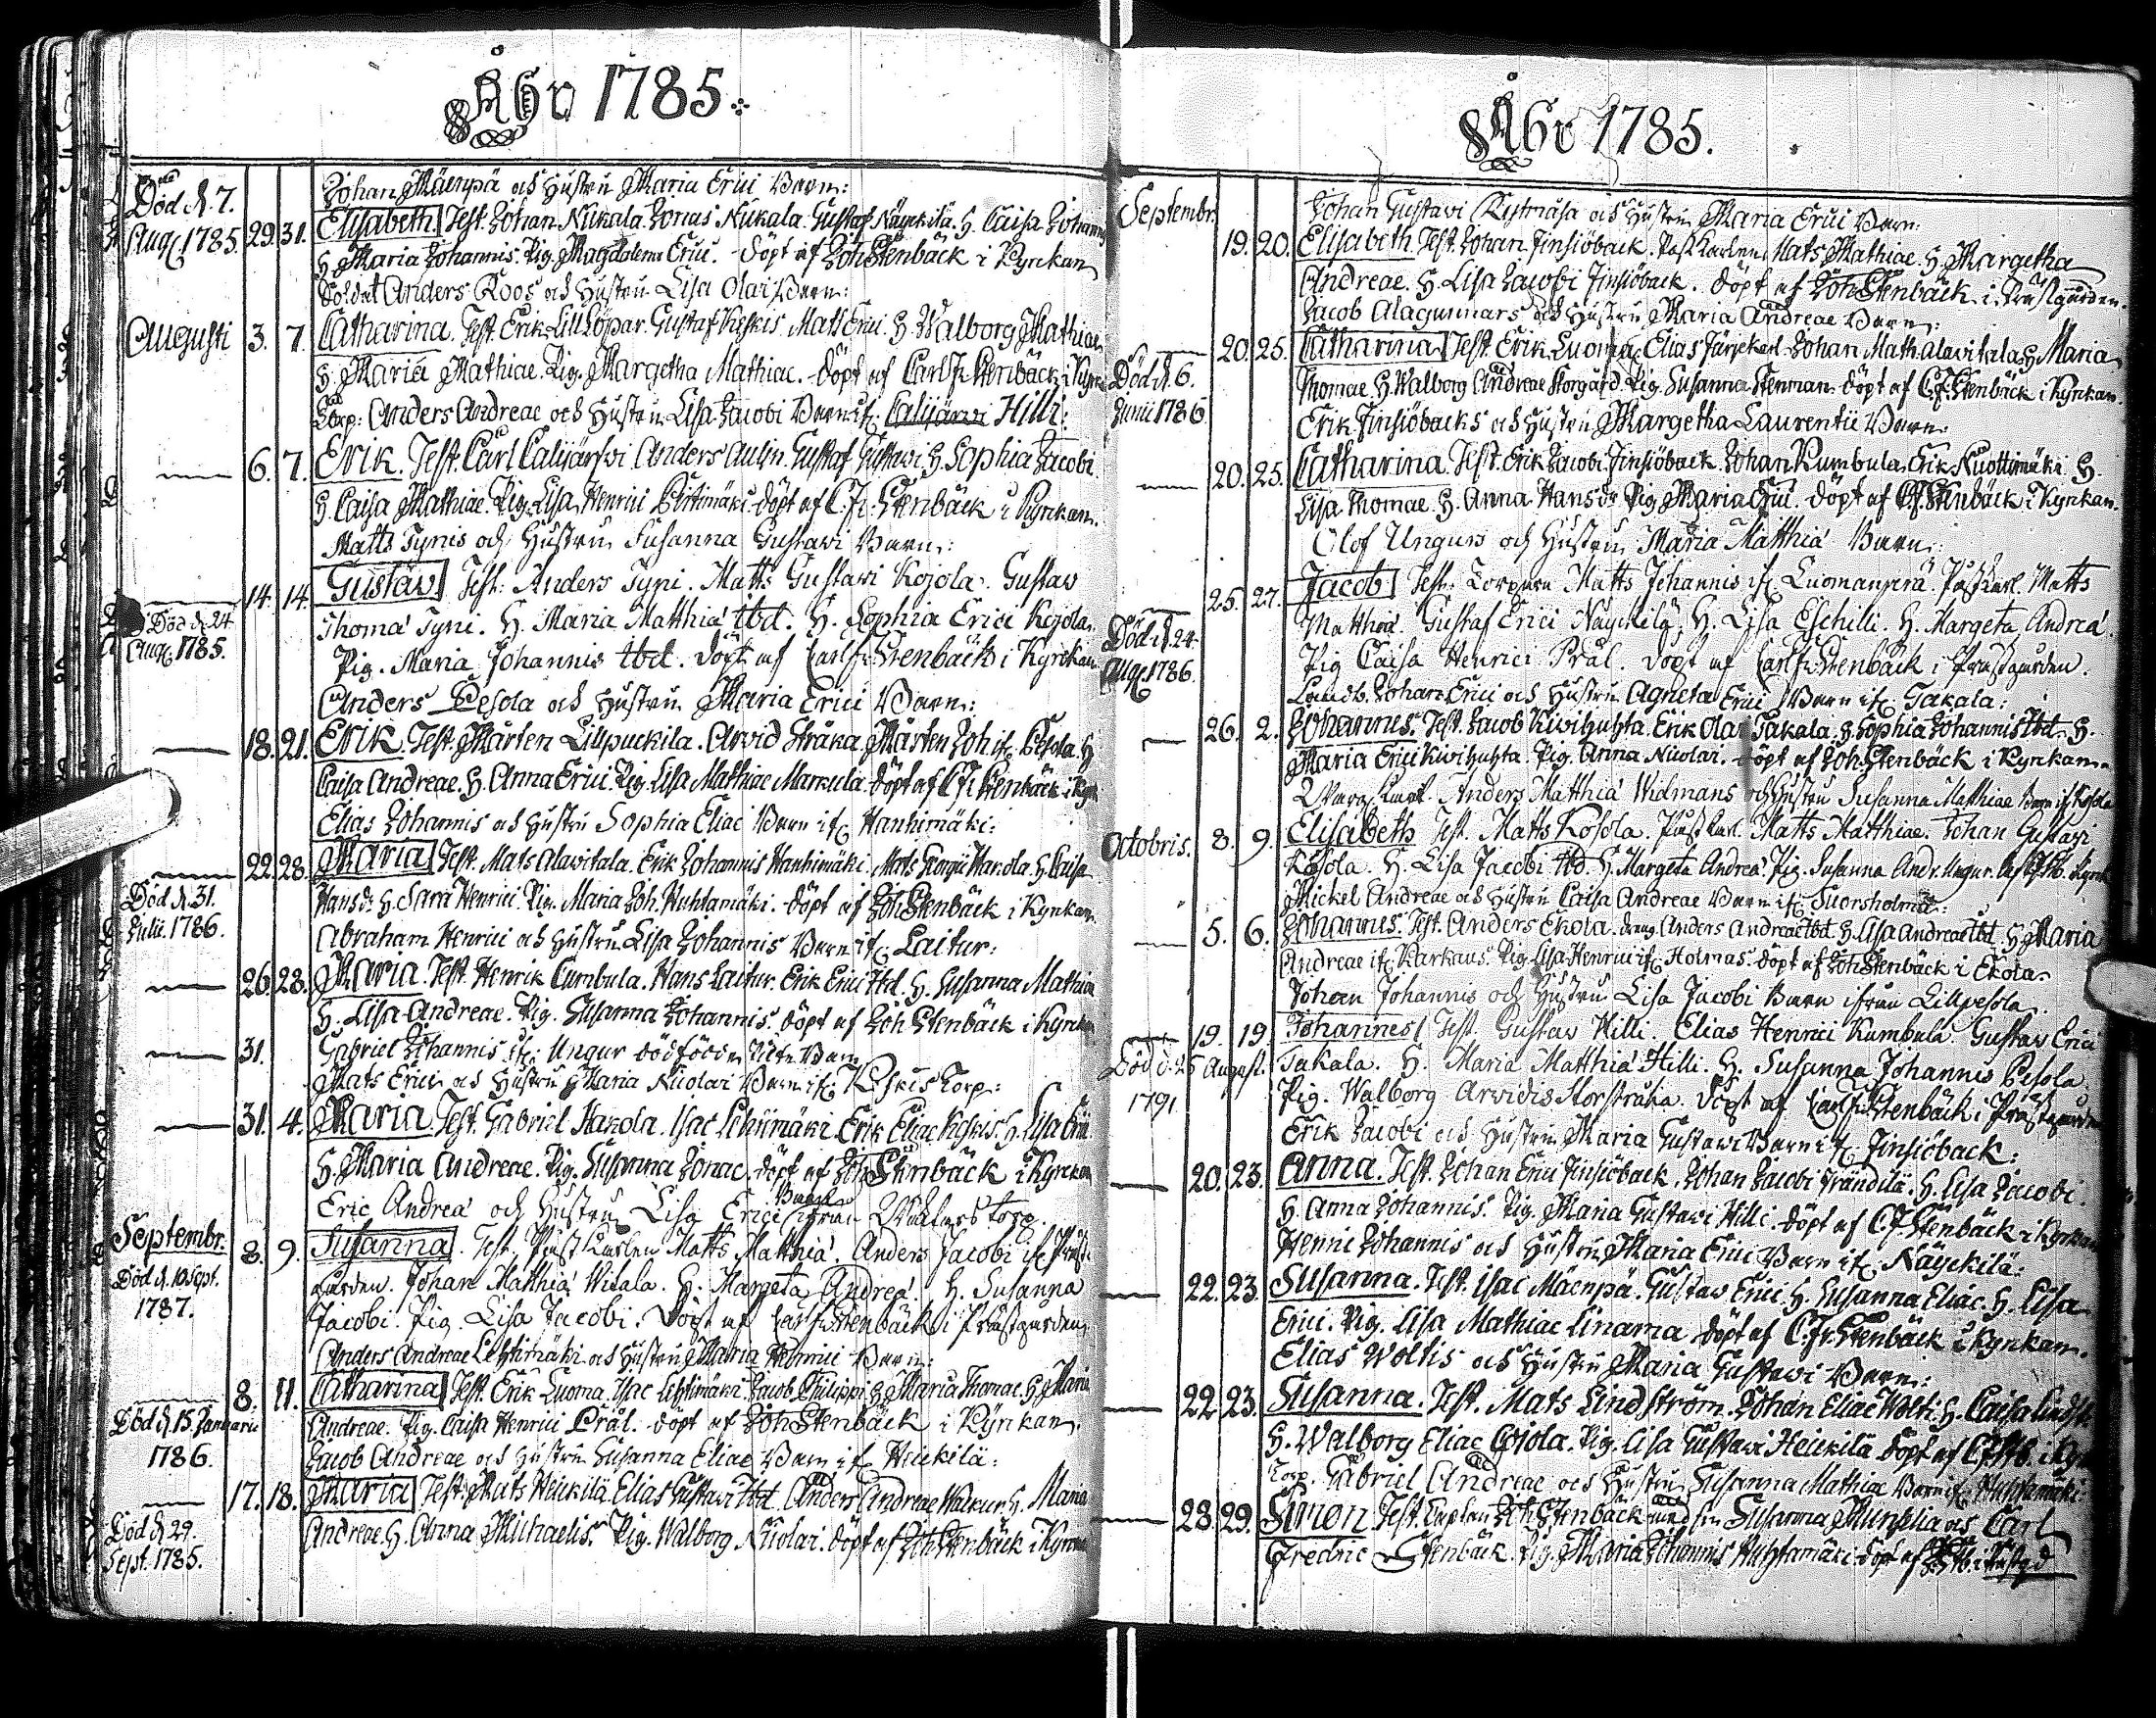 Åhr 1785.
Johan Mäenpä och Hustru Maria Erici Barn:
Död d. 7. Aug. 1785. 29. 31. Elisabeth. Test. Johan Nukala Jonas Nukala. Gustaf Näyckilä. H. Caisa Johannis
H. Maria Johannis. Pig. Magdalena Erici. döpt af Joh Stenbäck i Kyrkan
Soldat Anders Roos och Hustru Lisa Olai Barn:
Augusti 3. 7. Catharina. Test. Erik Lillsopar. Gustaf Keskis Mats Erici. H. Walborg Mathiae
H. Maria Mathiae. Pig. Margetha Mathiae. döpt af Carl Fr Stenbäck i Kyrk
Torp: Anders Andreae och Hustru Lisa Jacobi Barn if. Hilli:
6. 7. Erik. Test. Carl Calijärwi. Anders Aulin. Gustaf Gustawi. H. Sophia Jacobi.
H. Caisa Mathiae. Pig. Lisa Henrici döpt af C. Fr. Stenbäck i Kyrkan.
Matts Tynis och Hustru Susanna Gustavi Barn:
14. 14. Gustav Test: Anders Tyni. Matts Gustavi Kojola. Gustav
Död d. 24 Aug. 1785. Thomæ Tyni. H. Maria Matthiæ Ibd. H. Sophia Erici Kojola.
Pig. Maria Johannis Ibd. Döpt af Carl Fr Stenbäck i Kyrckan
Anders Pesola och Hustru Maria Erici Barn:
18. 21. Erik. Test. Mårten Lillpuckila. Arvid Stråka. Mårten Joh if. Pesola. H
Caisa Andreae. H. Anna Erici. Pig. Lisa Mathiae Marcula. döpt af C Fr Stenbäck i Kyrk
Elias Johannis och Hustru Sophia Eliae Barn if. Hanhimäki:
22. 28. Maria Test. Mats Alawitala. Erik Johannis Hanhimäki. Mats Georgii Harola. H. Caisa
Död d. 31. Julii. 1786. Hansdr. H. Sara Henrici. Pig. Maria Joh. Huhtamäki. döpt af Joh Stenbäck i Kyrkan.
Abraham Henrici och Hustru Lisa Johannis Barn if. Laitur:
26. 28. Maria. Test. Henrik Cumbula. Hans Laitur. Erik Erici Ibd. H. Susanna Mathiae
H. Lisa Andreae. Pig. Susanna Johannis. döpt af Joh Stenbäck i Kyrkan
31. Gabriel Johannis if. Ungur dödfödde Barn
Mats Erici och Hustru Maria Nicolai Barn if. Keskis Torp:
31. 4. Maria. Test. Gabriel Hakola. Isac Lehtimäki. Erik Eliae Keskis. H. Lisa Erici
H. Maria Andreae. Pig. Susanna Jonae. döpt af Joh Stenbäck i Kyrckan
Eric Andreæ och Hustru Lisa Erici Barn ifrån Torp.
Septembr: 8. 9. Susanna. Test. Matts Matthiæ. Anders Jacobi if. Präst
Död d. 10 Sept. 1787. gården. Johan Matthiæ Witala. H. Margeta Andreæ. H. Susanna
Jacobi. Pig. Lisa Jacobi. Döpt af Carl Fr Stenbäck i Prästgården
Anders Andreae Lehtimäki och Hustru Maria Henrici Barn:
8. 11. Catharina Test. Erik Luoma. Isac Lehtimäki. Jacob Philippi. H. Maria Thomae. H. Maria
Död d. 15. Januarii 1786. Andreae. Pig. Caisa Henrici Prål. döpt af Joh Stenbäck i Kyrkan.
Jacob Andreae och Hustru Susanna Eliae Barn if. Heickilä:
17. 18. Maria Test. Mats Heickilä Elias Gustawi Ibd. Anders Andreae H. Maria
Död d. 29. Sept. 1785. Andreae. H. Anna Michaelis. Pig. Walborg Nicolai. döpt af Joh Stenbäck i Kyrkan
Åhr 1785.
Septembr. Johan Gustawi och Hustru Maria Erici Barn:
19. 20. Elisabeth. Test. Johan Jinsiöback. Mats Mathiae. H. Margetha
Andreae. H. Lisa Jacobi Jinsiöback. döpt af Joh Stenbäck. i Prästgården.
Jacob Alagunnars och Hustru Maria Andreae Barn:
20. 25. Catharina Test. Erik Luoma, Elias Johan Math. Alavitala H. Maria
Död d. 6. Junii 1786. Thomae. H. Walborg Andreae Storgård. Pig. Susanna Stenman. döpt af C. F. Stenbäck i Kyrkan.
Erik Jinsiöbacks och Hustru Margetha Laurentii Barn
20. 25. Catharina. Test. Erik Jacobi Jinsiöback. Johan Kumbula. Erik Nuottimäki H.
Lisa Thomae. H. Anna Hansdr. Pig. Maria Erici. döpt af C. F. Stenbäck i Kyrkan.
Olof Ungurs och Hustru Maria Matthiæ Barn:
25. 27. Jacob Test. Torparen Matts Johannis if. Luomanperä. Matts
Död d. 24. Aug. 1786. Matthiæ. Gustaf Erici Näyckilä, H. Lisa Eschilli. H. Margeta Andreæ.
Pig Caisa Henrici Prål. döpt af Carl Fr Stenbäck i Prästgården.
Landb. Johan Erici och Hustru Agneta Erici Barn if. Takala:
26. 2. Johannes. Test. Jacob Kiwihuhta. Erik Olai Takala. H. Sophia Johannis Ibd. H.
Maria Erici Kiwihuhta. Pig. Anna Nicolai. döpt af Joh. Stenbäck i Kyrkan.
Anders Matthiæ Widmans och Hustru Susanna Mathiae Barn if. Kosola
Octobris. 8. 9. Elisabeth Test. Matts Kosola. Matts Matthiae. Johan Gustavi
Kosola. H. Lisa Jacobi Ibd. H. Margeta Andreæ. Pig. Susanna Andr. Ungur.
Mickel Andreae och Hustru Caisa Andreae Barn if. Suorsholma:
5. 6. Johannes. Test. Anders Ekola. dreng. Anders Andreae Ibd. H. Lisa Andreae Ibd. H. Maria
Andreae if. Karkaus. Pig. Lisa Henrici if. Holmas. döpt af Joh Stenbäck i Ekola.
Johan Johannis och Hustru Lisa Jacobi Barn ifrån Lillpesola
19. 19. Johannes Test. Gustav Hilli. Elias Henrici Kumbula. Gustav Erici
Död d. 25 August. 1791 Takala. H. Maria Matthiæ Hilli. H. Susanna Johannis Pesola.
Pig. Walborg Arvidis Storstråka. Döpt af Carl Fr Stenbäck i Prästgården
Erik Jacobi och Hustru Maria Gustawi Barn if. Jinsiöback:
20. 23. Anna. Test. Johan Erici Jinsiöback. Johan Jacobi Frändilä. H. Lisa Jacobi.
H. Anna Johannis. Pig. Maria Gustawi Hilli. döpt af C. F. Stenbäck i Kyrkan
Henric Johannis och Hustru Maria Erici Barn if. Näyckilä:
22. 23. Susanna. Test. Isac Mäenpä. Gustav Erici. H. Susanna Eliae. H. Lisa
Erici. Pig. Lisa Mathiae Linama döpt af C. Fr. Stenbäck i Kyrkan.
Elias Woltis och Hustru Maria Gustawi Barn:
22. 23. Susanna. Test. Mats Lindström. Johan Eliae Wolti. H. Caisa
H. Walborg Eliae Cojola. Pig. Lisa Gustawi Heickilä döpt af
Torp. Gabriel Andreae och Hustru Susanna Mathiae Barn if. Huhtamäki:
28. 29. Simon Test. Joh Stenbäck med Susanna och Carl
Fredric Stenbäck. Pig. Maria Johannis Huhtamäki. döpt af